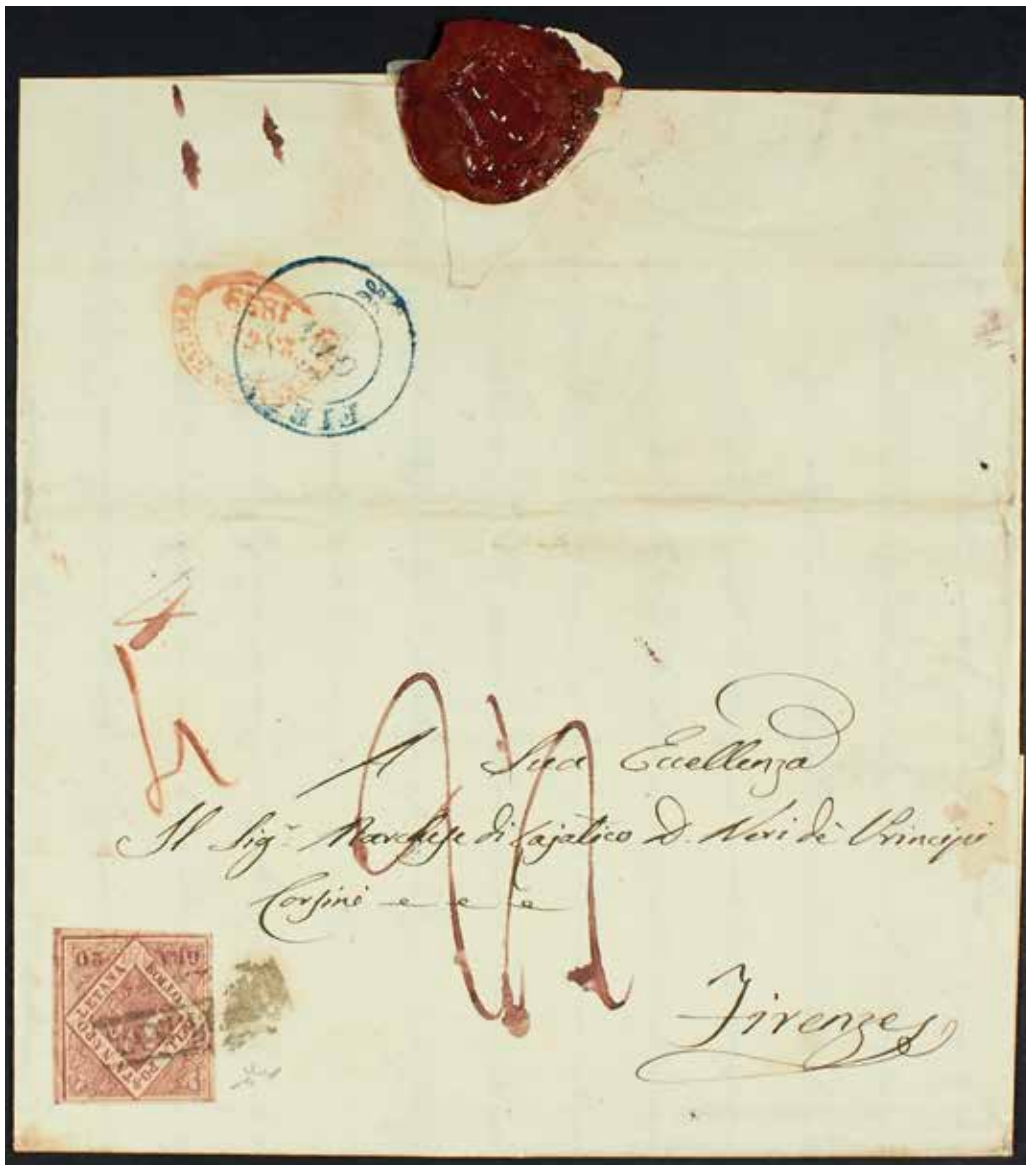 1859
FIRE
A Sua Eccellenza
Il Sig.r Marchese di Lajatico D. Neri de Principi
Corsini
Firenze
G.NA 20
BOLLO DELLA POSTA NAPOLETANA